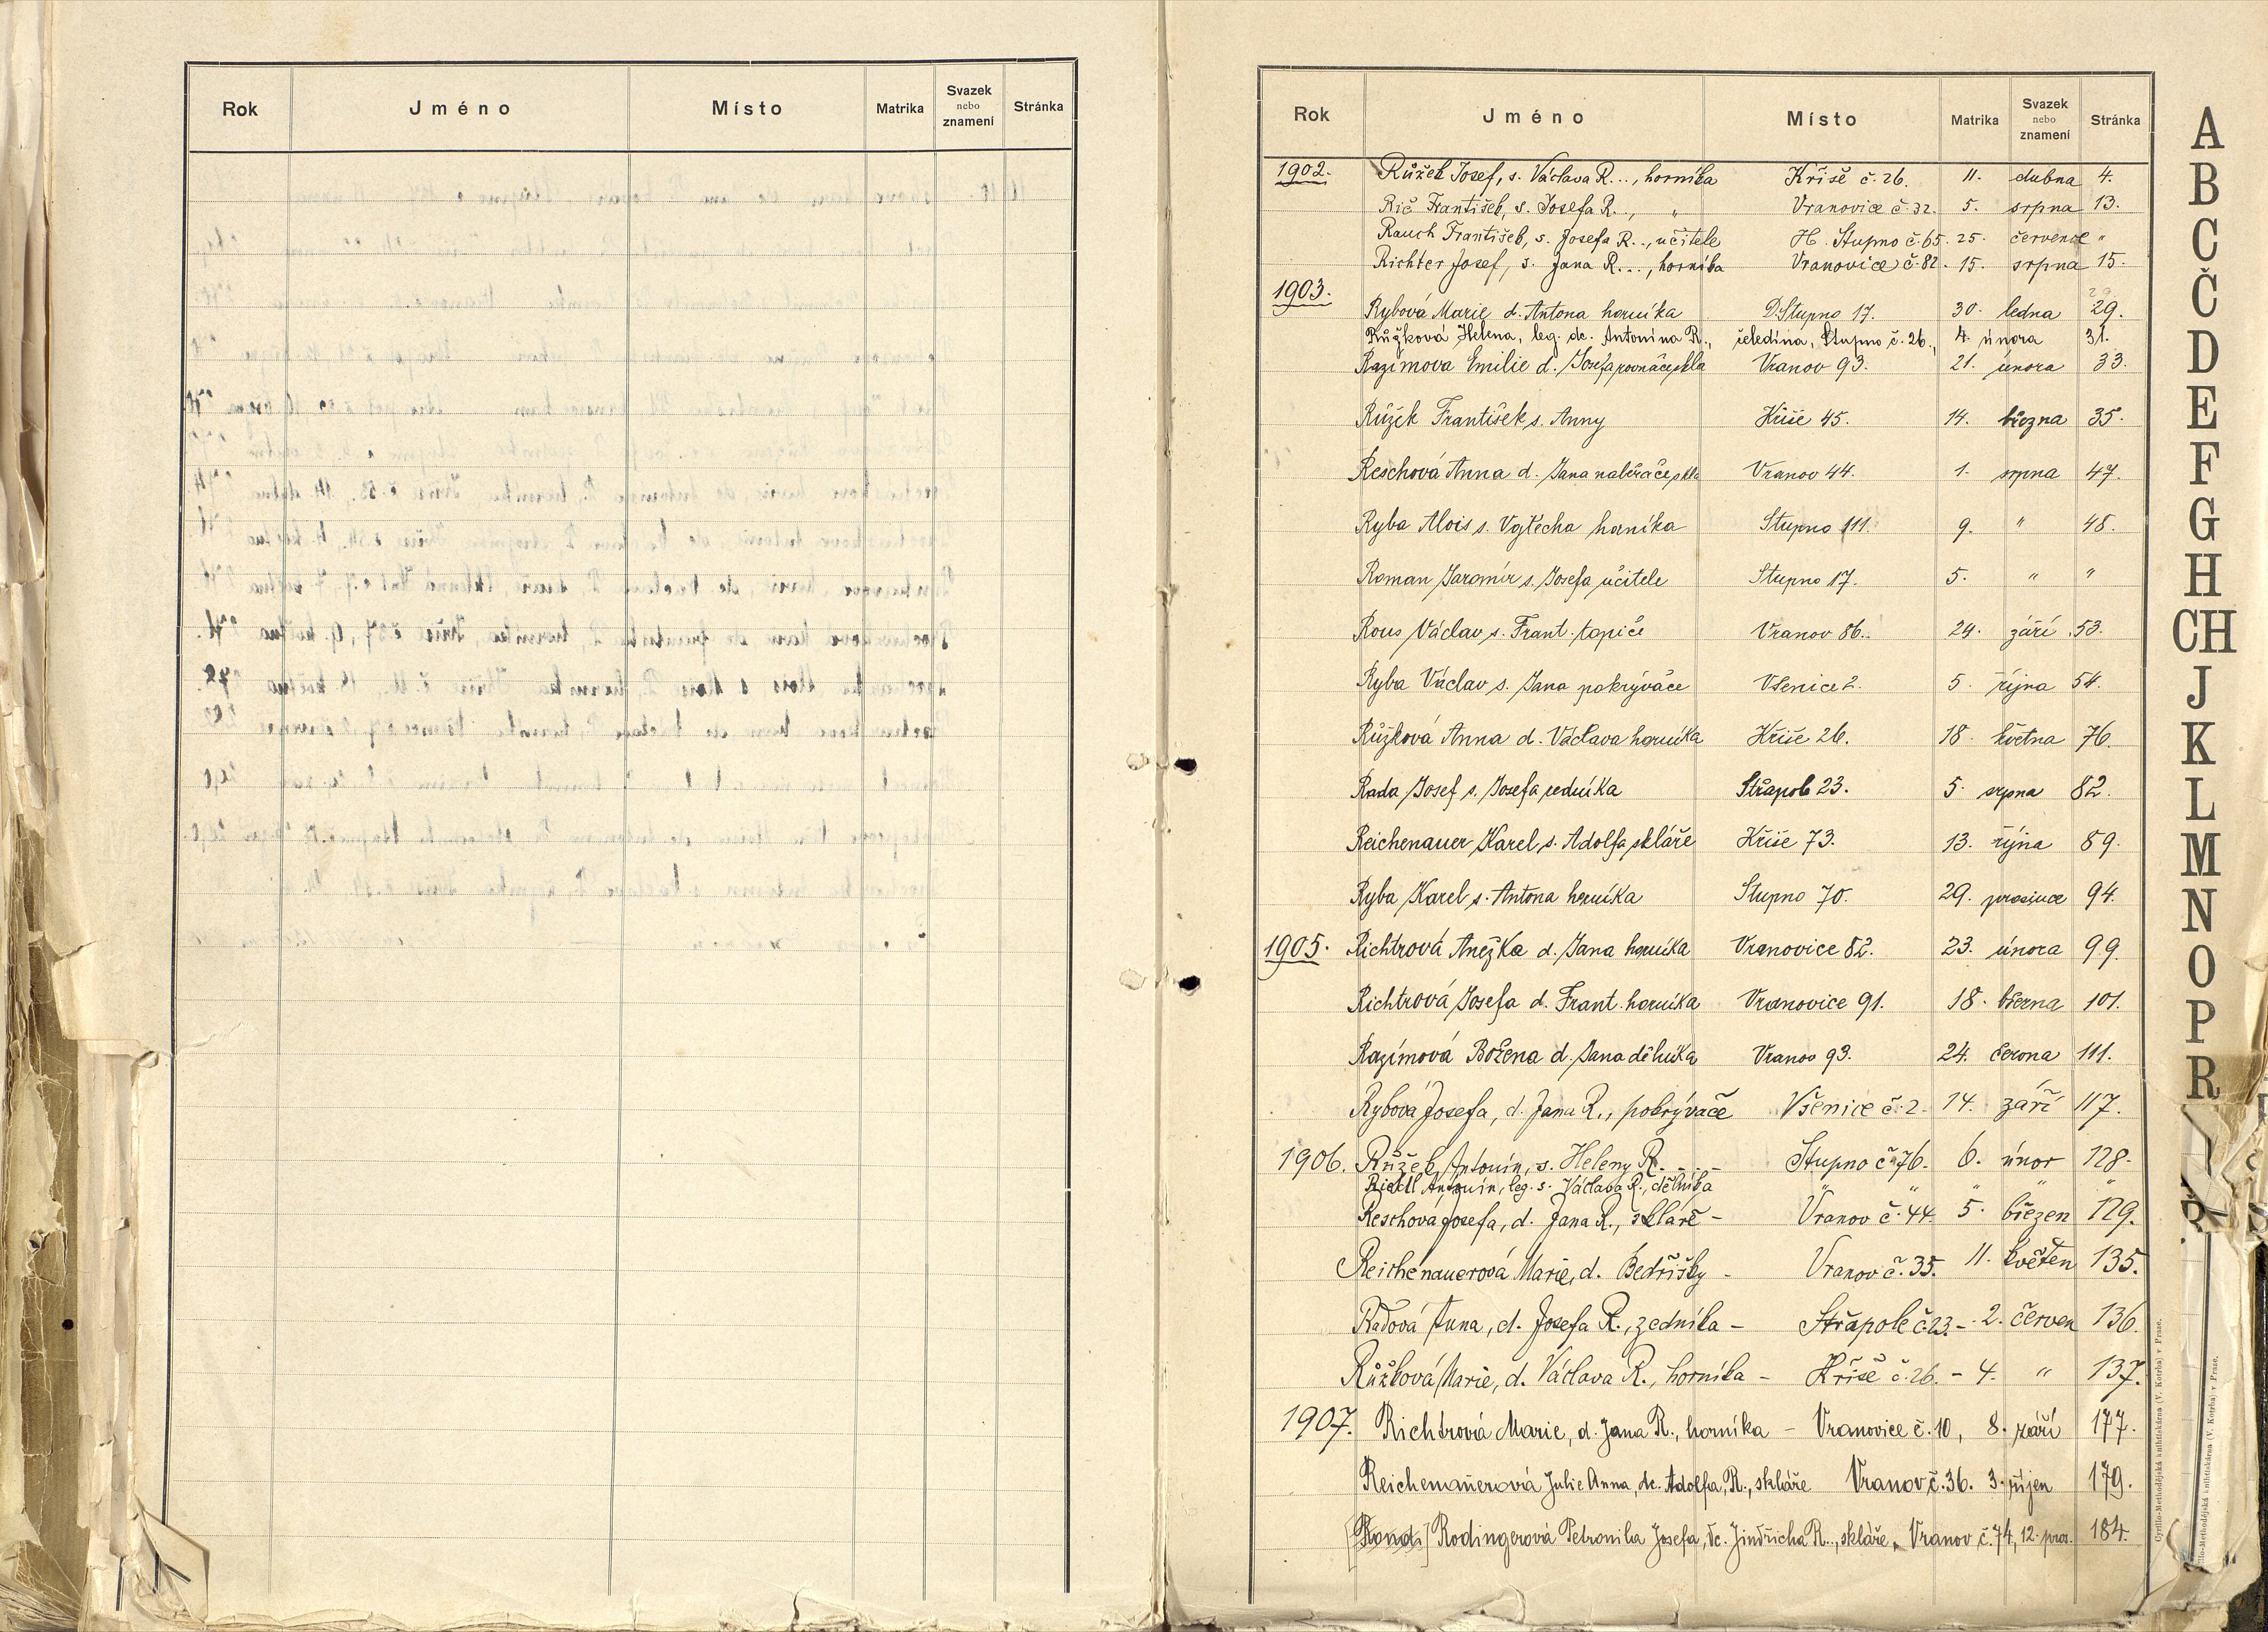 Rok Jméno Místo Matrika Svazek nebo znamení Stránka
Rok Jméno Místo Matrika Svazek nebo znamení Stránka
1902. Růžek Josef, s. Václava R..., horníka Kříše č. 26. 11. dubna 4.
Rič František, s. Josefa R.., " Vranovice č. 32. 5. srpna 13.
Rauch František, s. Josefa R.., učitele H. Stupno č. 65. 25. července "
Richter Josef, s. Jana R..., horníka Vranovice č. 82. 15. srpna 15.
1903.
Rybová Marie d. Antona horníka D. Stupno 17. 30. ledna 29.
Růžková Helena, leg. dc. Antonína R., čeledína, Stupno č. 26., 4. února 31.
Razímova Emilie d. Josefa rovnače skla Vranov 93. 21. února 33.
Růžek František s. Anny Kříše 45. 14. března 35.
Reschová Anna d. Jana naběrače skla Vranov 44. 1. srpna 47.
Ryba Alois s. Vojtěcha horníka Stupno 111. 9. " 48.
Roman Jaromír s. Josefa učitele Stupno 17. 5. " "
Rous Václav s. Frant. topiče Vranov 86. 24. září 53.
Ryba Václav s. Jana pokrývače Všenice 2. 5. října 54.
Růžková Anna d. Václava horníka Kříše 26. 18. května 76.
Rada Josef s. Josefa zedníka Střapol 23. 5. srpna 82.
Reichenauer Karel s. Adolfa skláře Kříše 73. 13. října 89.
Ryba Karel s. Antona horníka Stupno 70. 29. prosince 94.
1905. Richtrová Anežka d. Jana horníka Vranovice 82. 23. února 99.
Richtrová Josefa d. Frant. horníka Vranovice 91. 18. března 101.
Razímová Božena d. Jana dělníka Vranov 93. 24. června 111.
Rybová Josefa, d. Jana R., pokrývače Všenice č. 2. 14. září 117.
1906. Růžek Antonín, s. Heleny R. - - - Stupno č. 76. 6. únor 128.
Riedl Antonín, leg. s. Václava R., dělníka " " " " "
Reschová Josefa, d. Jana R., skláře - Vranov č. 44. 5. březen 129.
Reichenauerová Marie, d. Bedřišky - Vranov č. 35. 11. květen 135.
Radová Anna, d. Josefa R., zedníka - Střapole č. 23. - 2. červen 136.
Růžková Marie, d. Václava R., horníka - Kříše č. 26. - 4. " 137.
1907. Richtrová Marie, d. Jana R., horníka - Vranovice č. 10, 8. září 177.
Reichenauerová Julie Anna, dc. Adolfa R., skláře Vranov č. 36. 3. říjen 179.
[Rond.] Rodingerová Petronila Josefa, dc. Jindřicha R.., skláře, Vranov č. 74, 12. pros. 184.
A
B
C
Č
D
E
F
G
H
CH
J
K
L
M
N
O
P
R
Cyrillo-Methodějská knihtiskárna (V. Kotrba) v Praze.